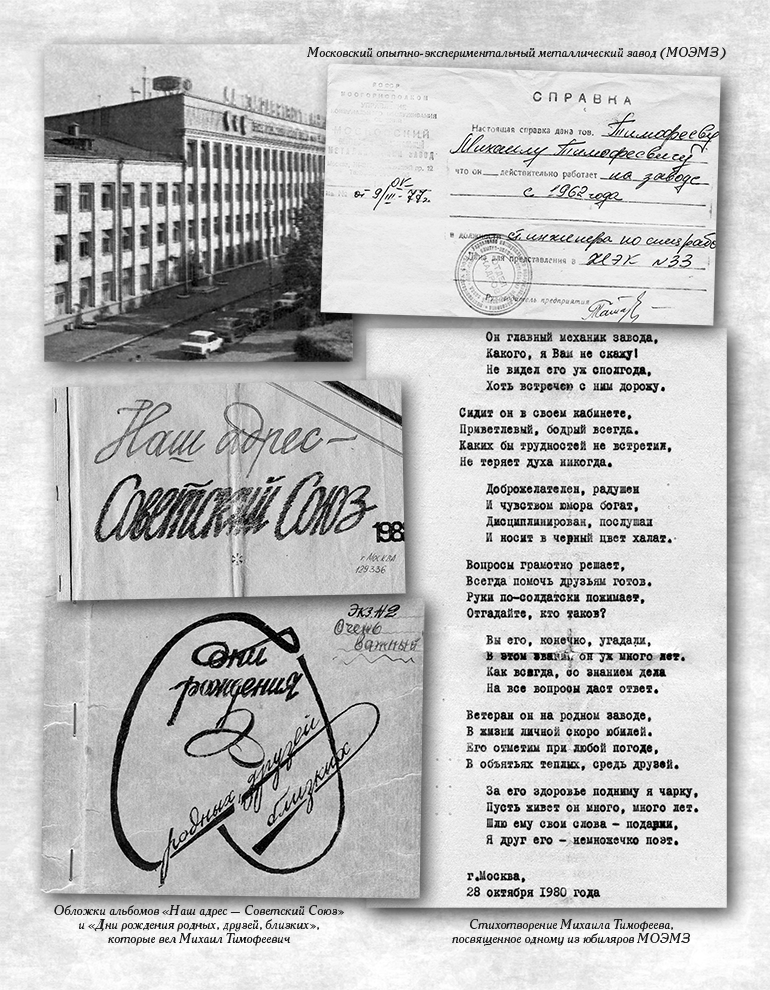 Московский опытно-экспериментальный металлический завод (МОЭМЗ)
СПРАВКА
Настоящая справка дана тов. Тимофееву
Михаилу Тимофеевичу
что он действительно работает на заводе
с 1962 года
от 9/III-77г.
в должности ст. инженера по спецрабо
Дана для представления в ЖЭК №33
предприятия
Он главный механик завода,
Какого, я Вам не скажу!
Не видел его уж сполгода,
Хоть встречею с ним дорожу.
Сидит он в своем кабинете,
Приветлевый, бодрый всегда.
Каких бы трудностей не встретил,
Не теряет духа никогда.
Доброжелателен, радушен
И чувством юмора богат,
Дисциплинирован, послушан
И носит в черный цвет халат.
Вопросы грамотно решает,
Всегда помочь друзьям готов.
Руки по-солдатски пожимает,
Отгадайте, кто таков?
Вы его, конечно, угадали,
В этом звании, он уж много лет.
Как всегда, со знанием дела
На все вопросы даст ответ.
Ветеран он на родном заводе,
В жизни личной скоро юбилей.
Его отметим при любой погоде,
В объятьях теплых, средь друзей.
За его здоровье подниму я чарку,
Пусть живет он много, много лет.
Шлю ему свои слова – подарки,
Я друг его – немножечко поэт.
г.Москва,
28 октября 1980 года
Наш адрес –
Советский Союз
г.Москва
129336
Экз.№2
Очень
важный
Дни
рождения
родных, друзей
близких
Обложки альбомов «Наш адрес — Советский Союз»
и «Дни рождения родных, друзей, близких»,
которые вел Михаил Тимофеевич
Стихотворение Михаила Тимофеева,
посвященное одному из юбиляров МОЭМЗ